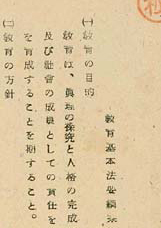 教育基本法要綱案
㈠教育の目的
教育は、眞理の探究と人格の完成
及び社會の成員としての責任を
を育成することを期すること。
㈡教育の方針